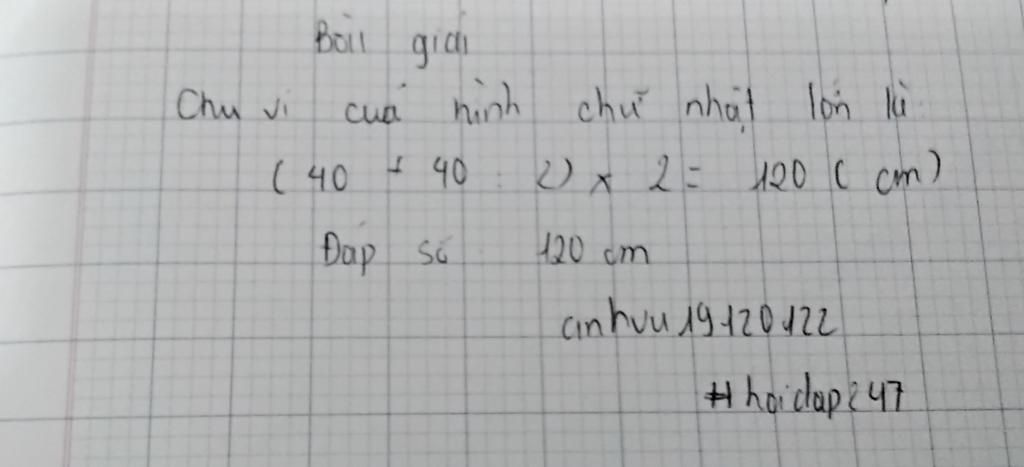 Bài giải
Chu vi của hình chữ nhật lớn là
( 40 + 40 : 2) x 2 = 120 ( cm)
Đáp số 120 cm
anhvu19120122
# hoidap247